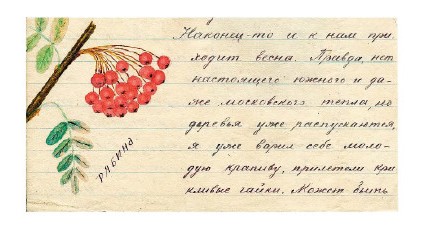 Наконец-то и к нам при
ходит весна. Правда, нет
настоящего южного и да-
же московского тепла, но
деревья уже распускаются,
я уже варил себе моло-
дую крапиву, прилетели кри
кливые чайки. Может быть
РЯБИНА